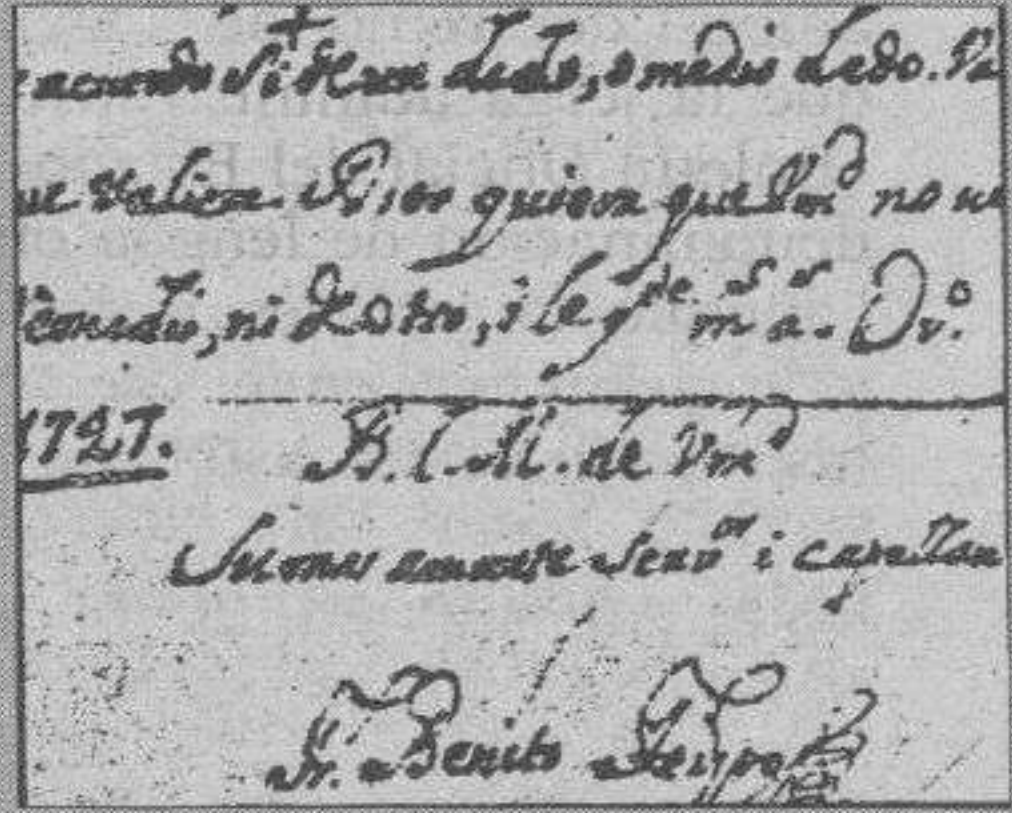 acuerdo si de un dedo, o medio dedo. Va
ue valiera Dios quiera que Vmd no u
remedio, ni de otro, i le g.de m.s a.s Ov.o
1727.
B. L. M. de Vmd
Su mas amante Serv.or i capellan
Fr. Benito Feijoo